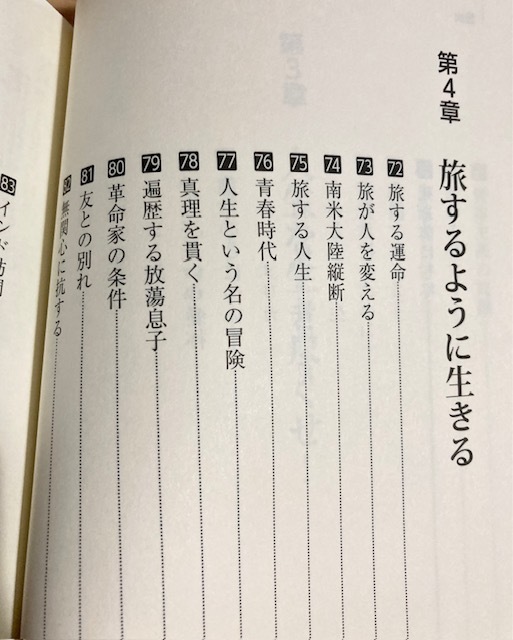 第4章 旅するように生きる
72 旅する運命
73 旅が人を変える
74 南米大陸縦断
75 旅する人生
76 青春時代
77 人生という名の冒険
78 真理を貫く
79 遍歴する放蕩息子
80 革命家の条件
81 友との別れ
82 無関心に抗する
83 インド訪問